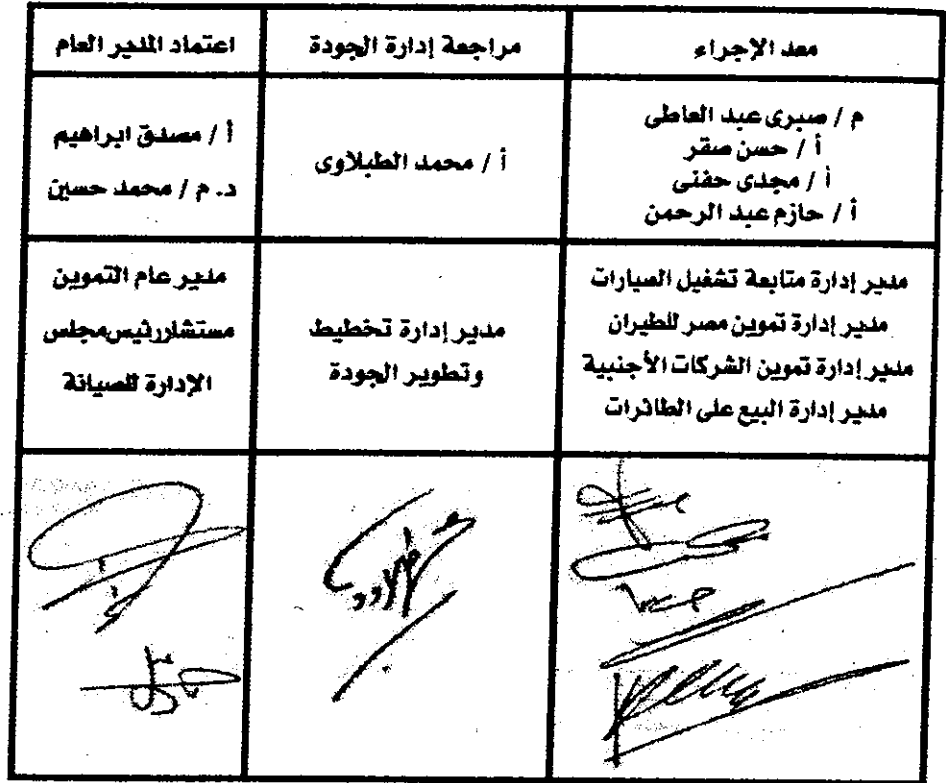 معد الإجراء
مراجعة إدارة الجودة
اعتماد المدير العام
م / صبرى عبد العاطى
أ / حسن صقر
أ / مجدى حفنى
أ / حازم عبد الرحمن
أ / محمد الطبلاوى
أ / مصدق ابراهيم
د. م / محمد حسين
مدير إدارة متابعة تشغيل السيارات
مدير إدارة تموين مصر للطيران
مدير إدارة تموين الشركات الأجنبية
مدير إدارة البيع على الطائرات
مدير إدارة تخطيط
وتطوير الجودة
مدير عام التموين
مستشار رئيس مجلس
الإدارة للصيانة